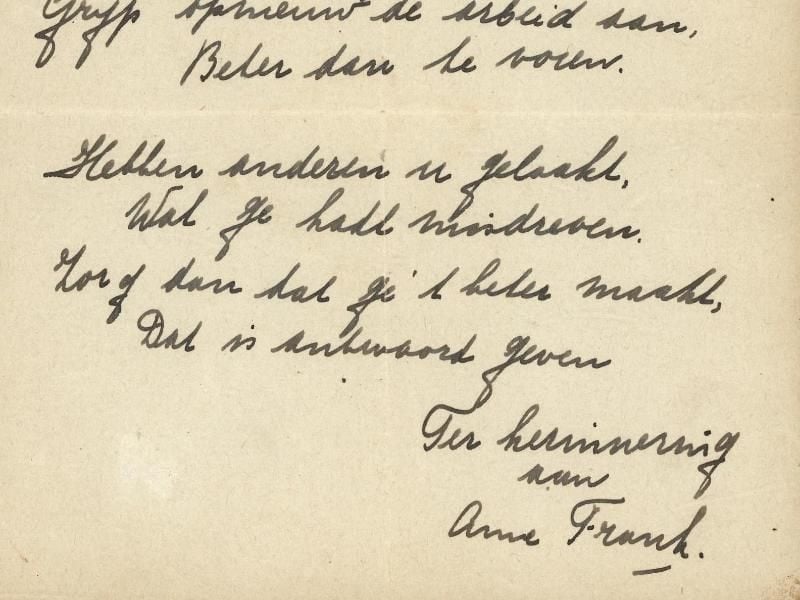 Gryp opnieuw de arbeid aan,
Beter dan te voren.
Hebben anderen u gelaakt,
Wat ge hadt misdreven.
Zorg dan dat ge 't beter maakt,
Dat is antwoord geven
Ter herinnering
aan
Anne Frank.